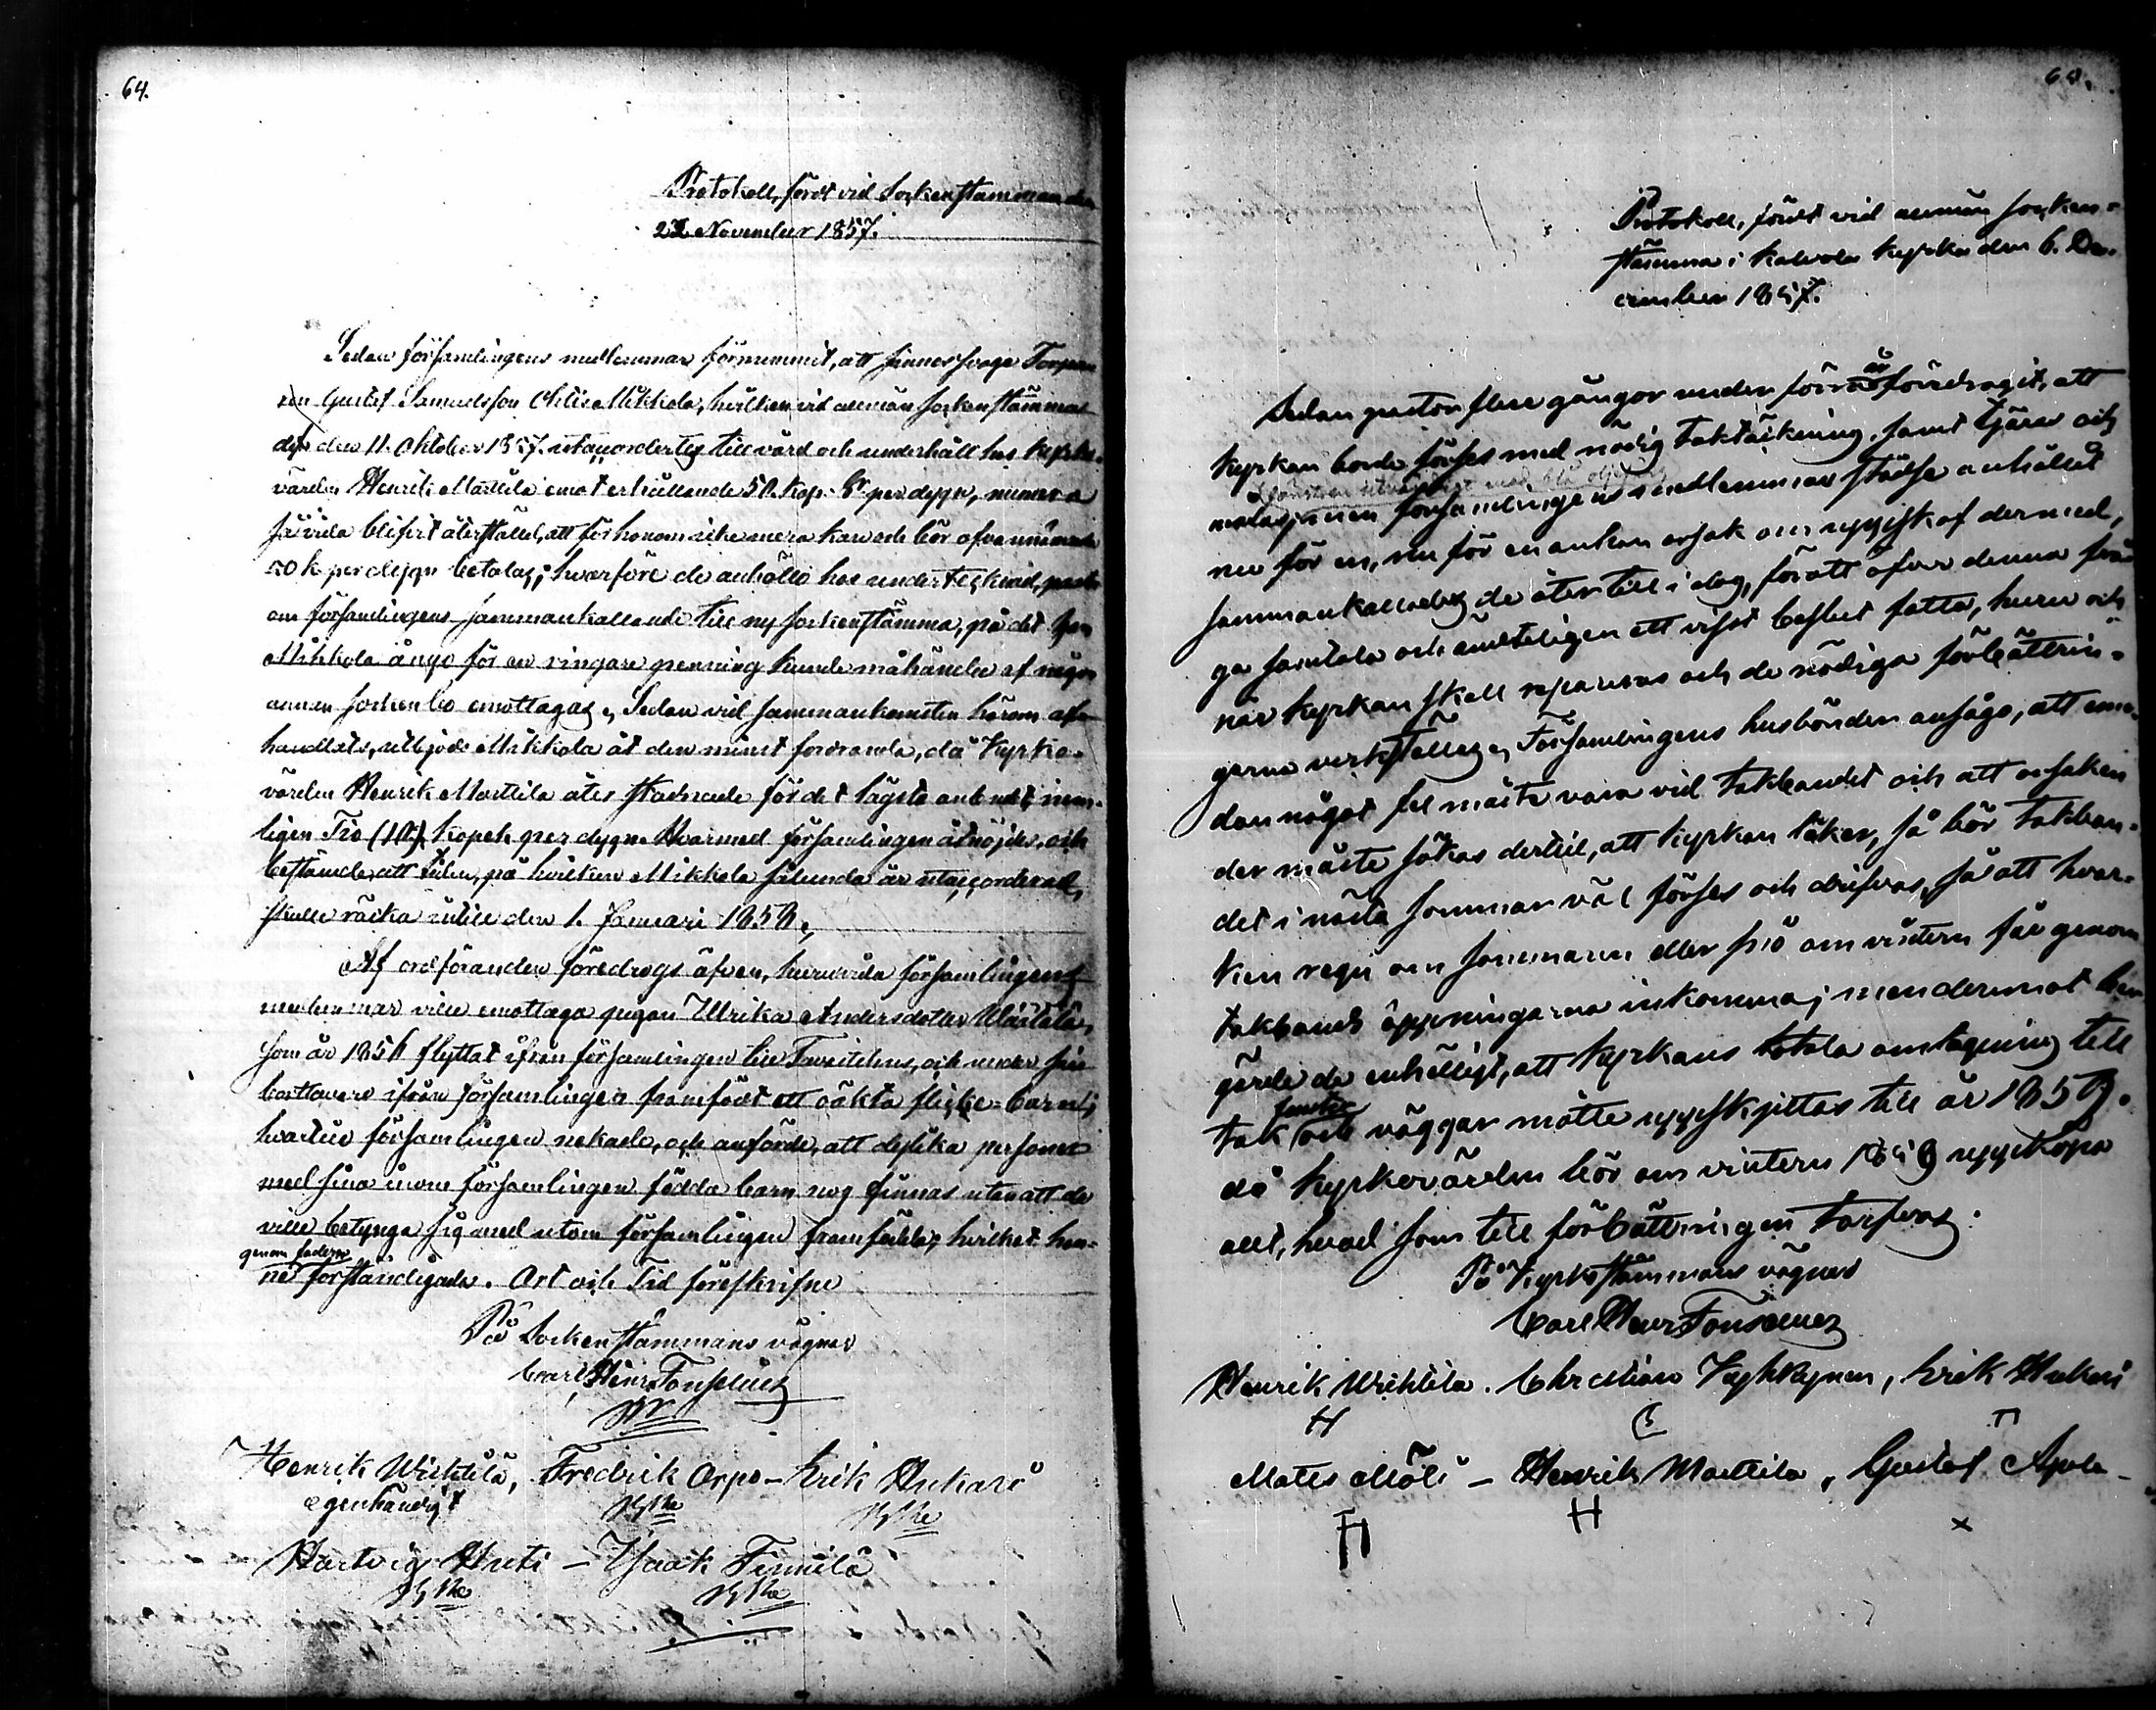 64.
Protokoll, fördt vid Sockenstämman den
22 November 1857.
Sedan församlingens medlemmar förnummit, att sinnessvage Torparen
Gustaf Samuelsson Mikkola, hvilken vid allmän Sockenstämma
den 11. Oktober 1857. utackorderts till vård och underhåll hos Kyrko-
värden Henrik Marttila emot erhållande 50. Kop. Sr per dygn, numera
såvida blifvit återstäld, att för honom icke mera kan och bör ofvannämnde
50 k per dygn betalas; hvarföre de anhållit hos undertecknad, pastor
om församlingens sammankallande till ny Sockenstämma, på det
Mikkola ånyo för en ringare penning kunde måhända af någon
annan sockenbo emottagas, Sedan vid sammankomsten härom af-
handlats, utbjöds Mikkola åt den minst fordrande, då Kyrko-
värden Henrik Marttila åter stadnade för det lägsta anbudet, nem-
ligen Tio (10) kopek per dygn. Hvarmed församlingen åtnöjdes, och
bestämde, att tiden, på hvilken Mikkola sålunda är utaccorderad,
skulle räcka intill den 1. Januari 1858.,
Af ordföranden föredrogs äfven, huruvida församlingens
medlemmar ville emottaga pigan Ulrika Andersdotter
som år 1856 flyttat ifrån församlingen till och under sin
bortovaro ifrån församlingen framfödt ett oäkta flicko-barn;
hvartill församlingen nekade, och anförde, att dylika personer
med sina inom församlingen födda barn nog finnas utan att de
ville betynga sig med utom församlingen framfödda, hvilket hen-
genom fadren
ne förständigades. Ort och Tid föreskrifne
På Sockenstämmans vägnar
Carl Henr. Fonselius
Henrik Wichtilä, Fredrik Orpo - Erik Hukari
egenhändigt
Hartvig Huti - Isaak Finnilä
Protokoll, fördt vid allmän Socken-
stämma i Kalvola kyrka den 6. De-
cember 1857.
Sedan pastor flere gångor under förra år föredragit, att
kyrkan borde förses med nödig taktäckning, samt tjäras och
målas, men församlingens medlemmar städse anhållit
nu för en, nu för en annan orsak om uppskof dermed,
sammankallades de åter till i dag, för att öfver denna frå-
ga samtala och ändteligen ett visst beslut fatta, huru och
när kyrkan skall repareras och de nödiga förbättrin-
garna verkställas, Församlingens husbönder ansågo, att
något fel måste vara vid takbandet och att orsaken
der måste sökas dertill, att kyrkan läker, så bör takban-
det i nästa sommar väl förses och drifvas, så att hvar-
ken regn om sommaren eller snö om vintern får genom
takbands öppningarna inkomma; men deremot be-
gärde de enhälligt, att kyrkans totala omlagning till
fönster
tak och väggar måtte uppskjutas till år 1859.
då kyrkovärden bör om vintern 1859 uppköpa
allt, hvad som till förbättringen tarfvas.
På Kyrkostämmans vägnar
Carl Henr Fonselius
Henrik Wichtila. Christian , Erik Hukari
Matts Möli - Henrik Marttila, Gustaf